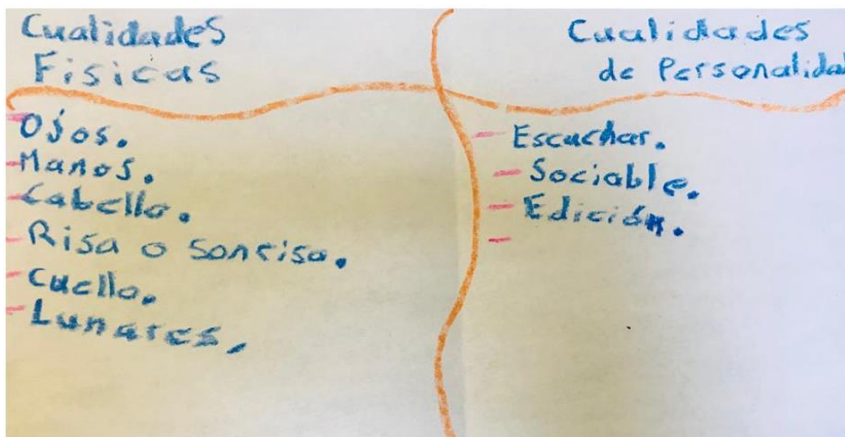 Cualidades
Fisicas
Ojos.
Manos.
Cabello.
Risa o Sonrisa.
Cuello.
Lunares.
Cualidades
de Personalidad
Escuchar.
Sociable.
Edición.